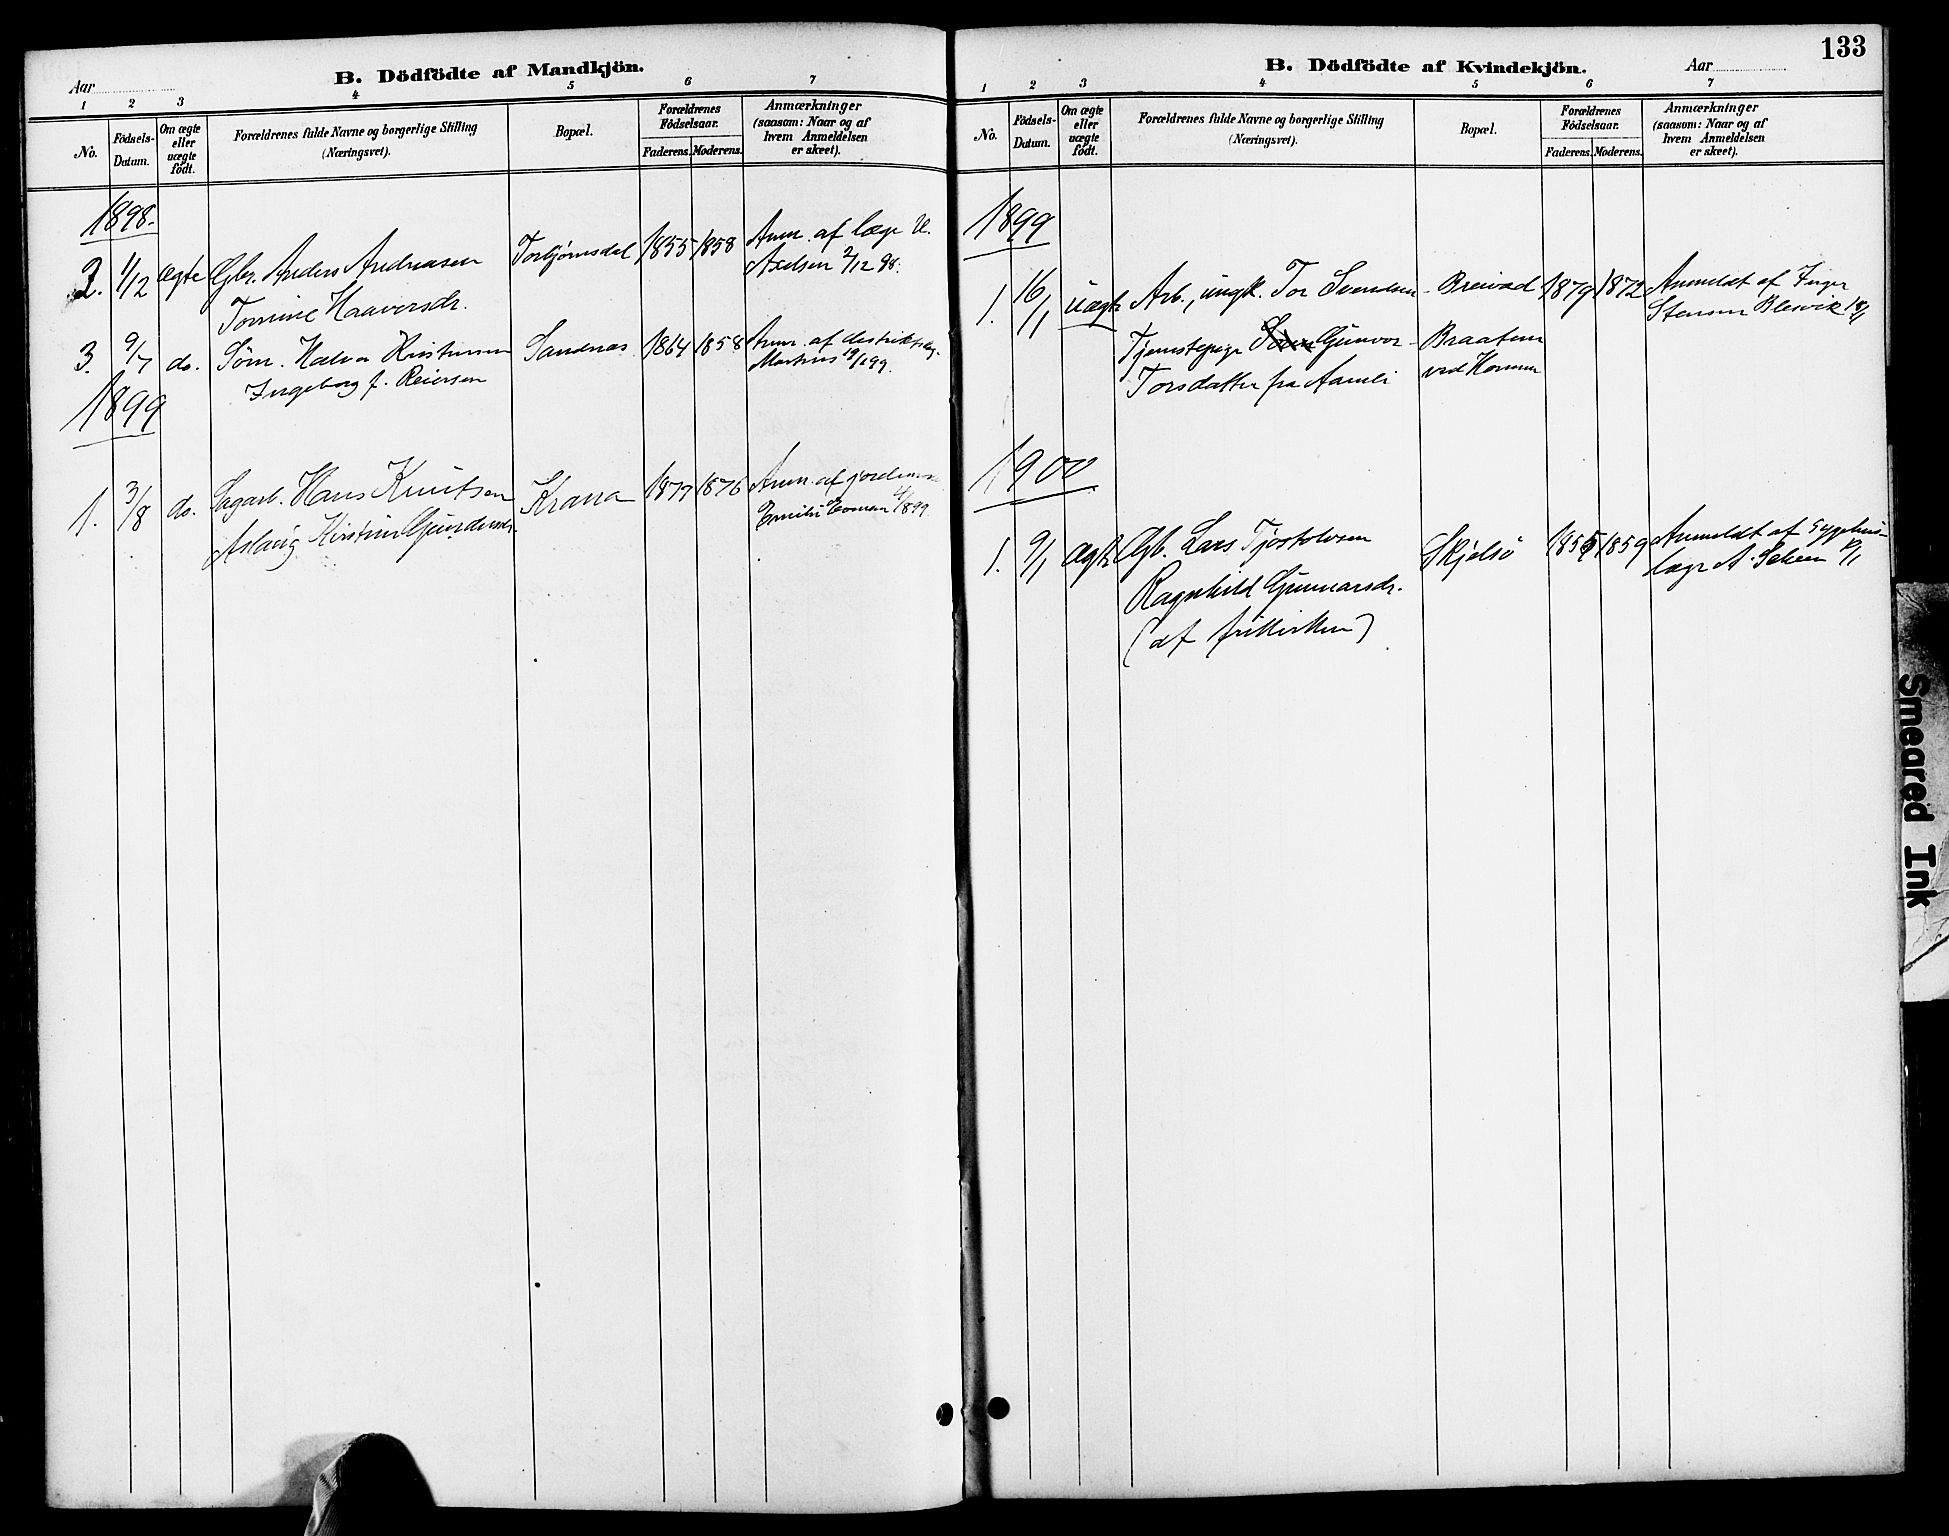 B. Dödfödte af Mandkjön.
Aar
1 2 3 4 5 6 7
No. Födsels-Datum. Om ægte eller uægte födt. Forældrenes fulde Navne og borgerlige Stilling (Næringsvei). Bopæl. Forældrenes Födselsaar. Faderens. Moderens. Anmærkninger (saasom: Naar og af hvem Anmeldelsen er skeet).
1898.
2. 1/12 ægte Gbr. Anders Andreasen Torbjørnsdal 1855 1858 Anm. af læge
Tomine Haaversdr. Axelsen 2/12 98.
3. 9/7 do. Søm. Halvor Kristensen Sandnæs 1864 1858 Anm. af
Ingeborg f. Reiersen
1899
1. 3/8 do. Sagarb. Hans Knutsen Krana 1877 1876 Anm. af
Aslaug Kirstine
133
B. Dödfödte af Kvindekjön.
Aar
1 2 3 4 5 6 7
No. Födsels-Datum. Om ægte eller uægte födt. Forældrenes fulde Navne og borgerlige Stilling (Næringsvei). Bopæl. Forældrenes Födselsaar. Faderens. Moderens. Anmærkninger (saasom: Naar og af hvem Anmeldelsen er skeet).
1899
1. 16/1 uægte Arb., ungk. Tor Svendsen Breivad 1879 1872 Anmeldt af Inger
Tjenestepige Gunvor Braaten Stensen
Torsdatter fra Aamli ved
1900
1. 9/1 ægte Gb. Lars Tjostolvsen Skjelsø 1855 1859 Anmeldt af Sygehus-
Ragnhild Gunnarsdr. læge A.
(af frikirken)
Smeared Ink